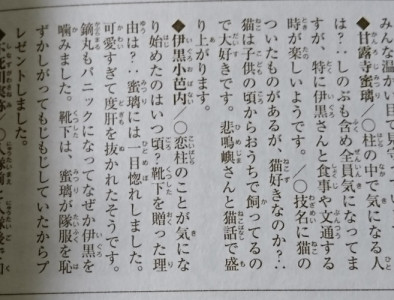 みんな温かい目で見て
◆甘露寺蜜璃／○柱の中で気になる人
は？‥しのぶも含め全員気になってま
すが、特に伊黒さんと食事や文通する
時が楽しいようです。／○技名に猫の
ついたものがあるが、猫好きなのか？‥
猫は子供の頃からおうちで飼ってるの
で大好きです。悲鳴嶼さんと猫話で盛
り上がります。
◆伊黒小芭内／○恋柱のことが気にな
り始めたのはいつ頃？靴下を贈った理
由は？‥蜜璃には一目惚れしました。
可愛すぎて度肝を抜かれたそうです。
鏑丸もパニックになってなぜか伊黒を
噛みました。靴下は、蜜璃が隊服を恥
ずかしがってもじもじしていたからプ
レゼントしました。